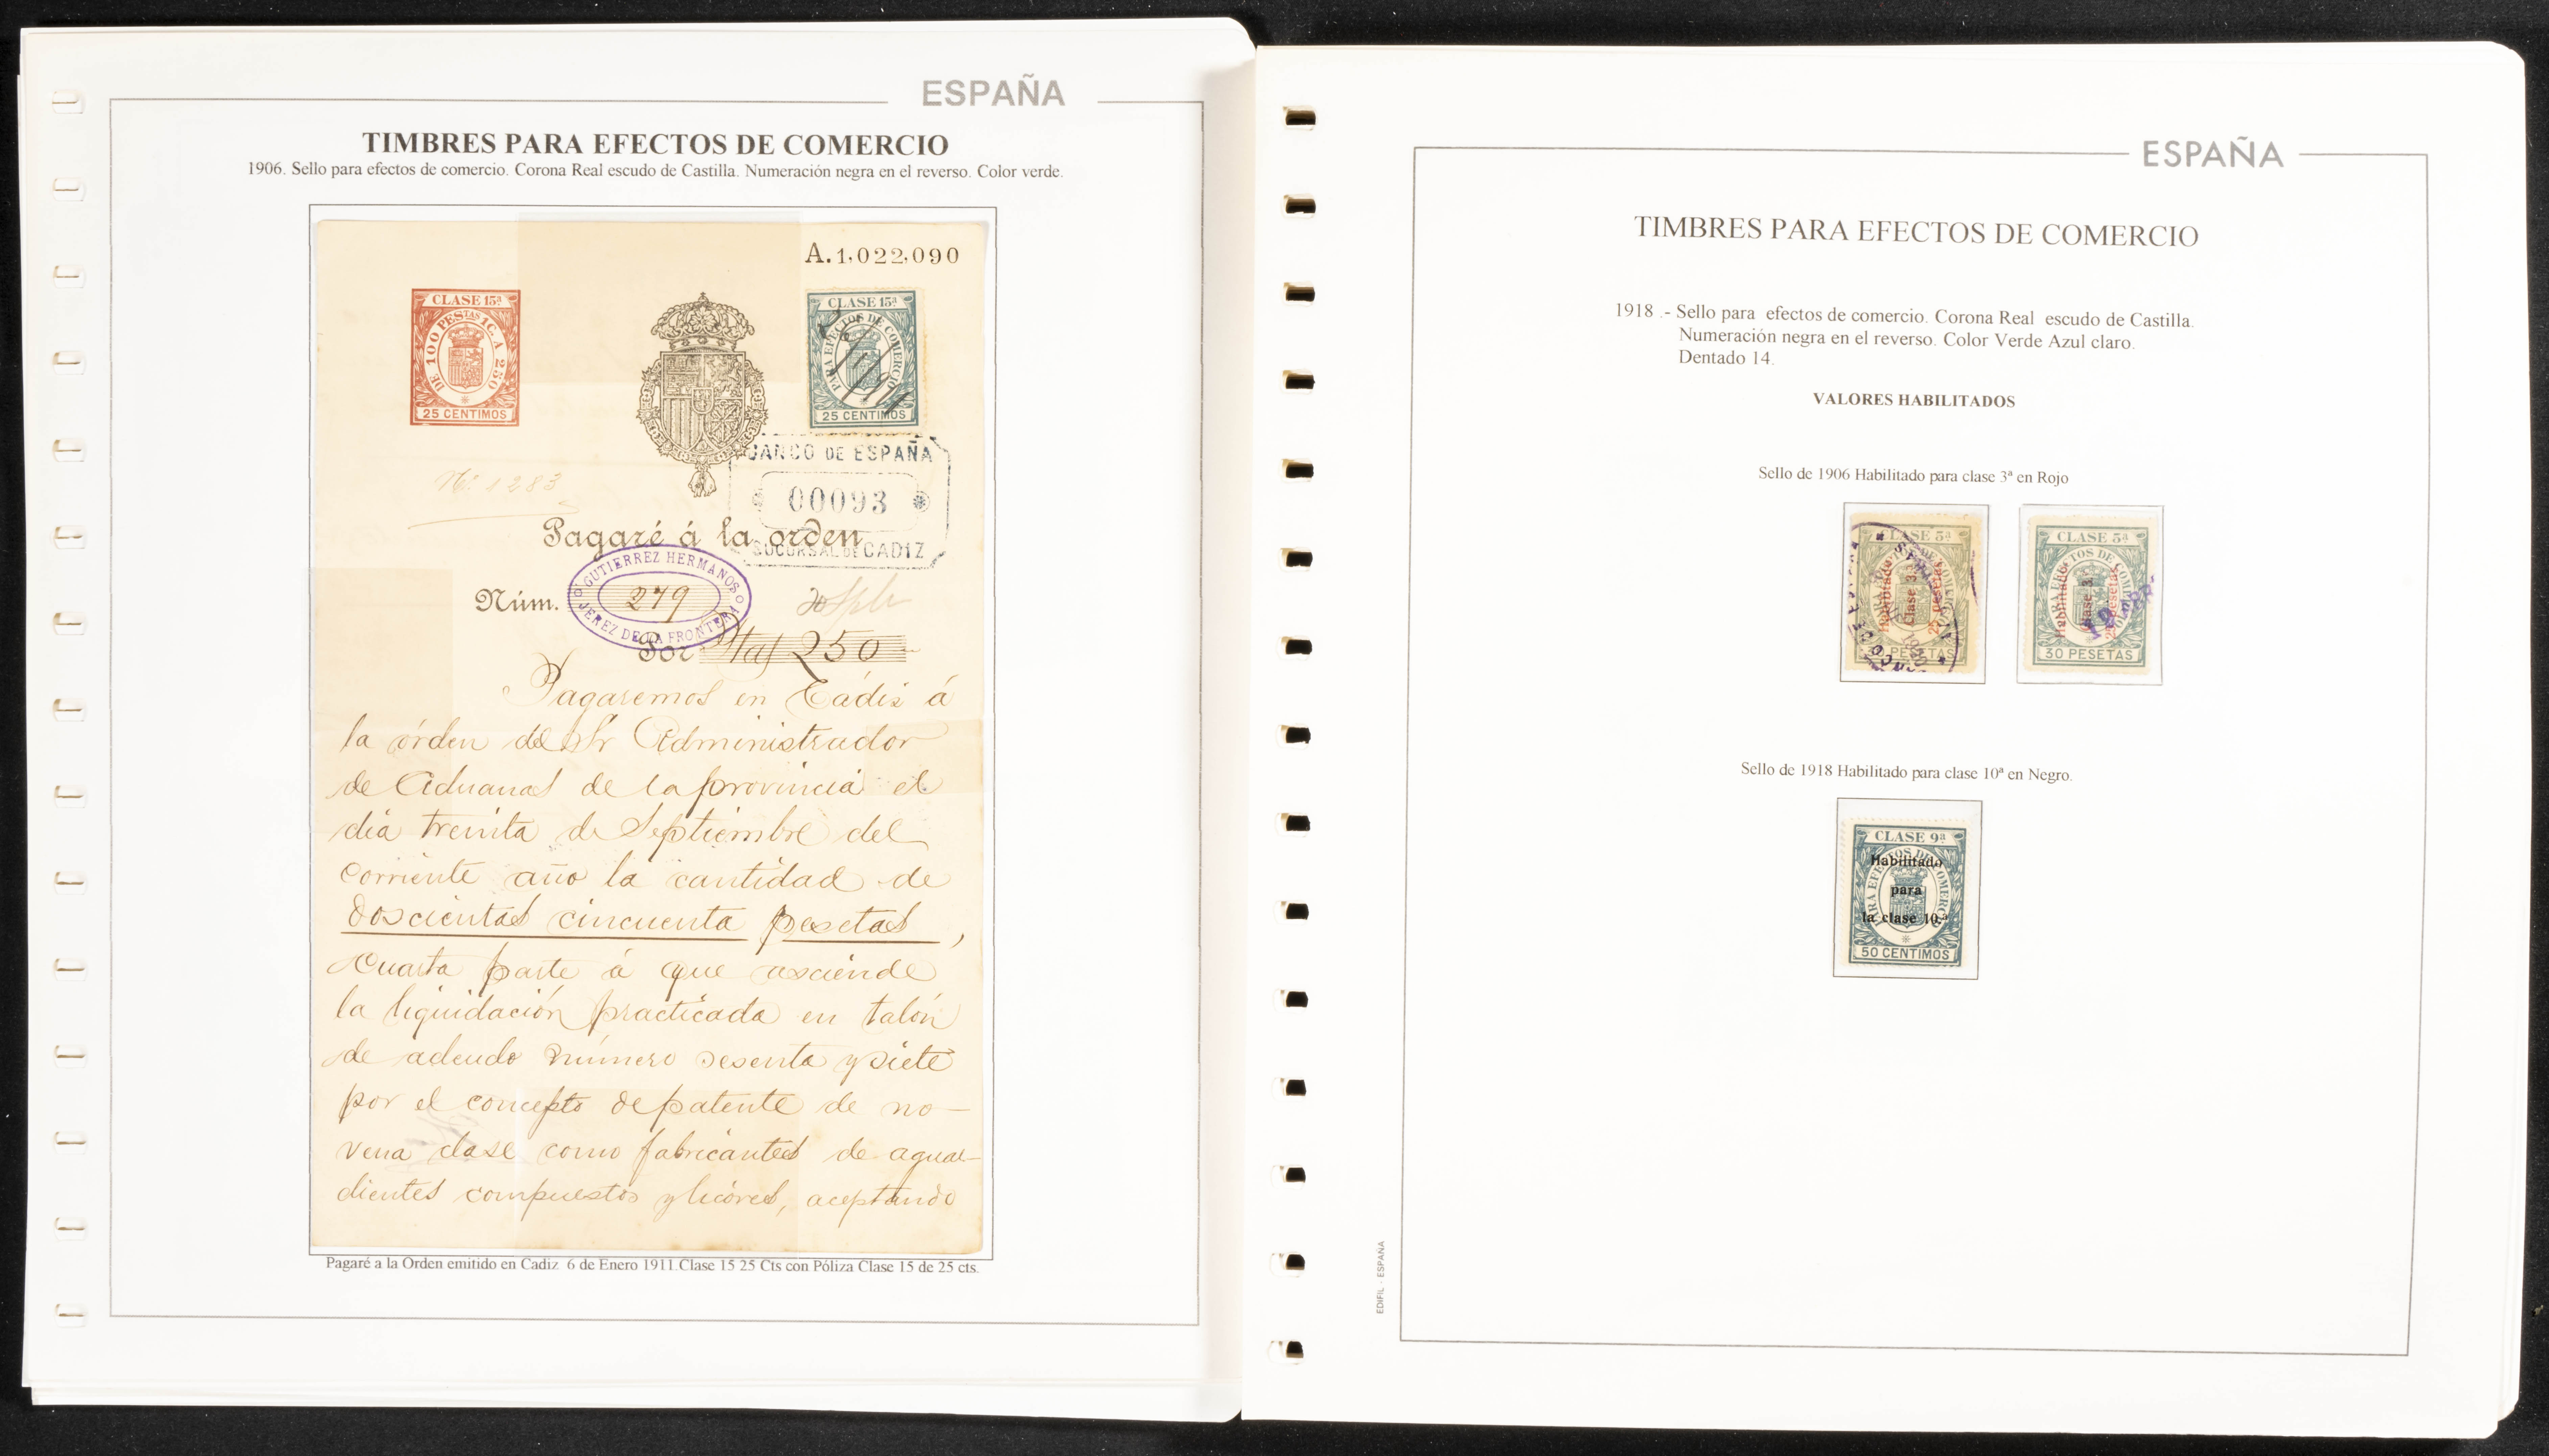 ESPAÑA
TIMBRES PARA EFECTOS DE COMERCIO
1906. Sello para efectos de comercio. Corona Real escudo de Castilla. Numeración negra en el reverso. Color verde.
A.1,022,090
CLASE 15ª
DE 100 PESTAS 1 C. A 250
25 CENTIMOS
CLASE 15ª
PARA EFECTOS DE COMERCIO
25 CENTIMOS
BANCO DE ESPAÑA
00093
SUCURSAL DE CADIZ
Nº 1283
Pagaré á la orden
Núm.
GUTIERREZ HERMANOS
279
JEREZ DE LA FRONTERA
Por Ptas 250
Pagaremos en Cádiz á
la órden del Sr Administrador
de Aduanas de la provincia el
día treinta de Septiembre del
corriente año la cantidad de
doscientas cincuenta pesetas,
cuarta parte á que asciende
la liquidación practicada en talón
de adeudo número sesenta y siete
por el concepto de patente de no-
vena clase como fabricantes de aguar-
dientes compuestos y licores, aceptando
Pagaré a la Orden emitido en Cadiz 6 de Enero 1911.Clase 15 25 Cts con Póliza Clase 15 de 25 cts.
ESPAÑA
TIMBRES PARA EFECTOS DE COMERCIO
1918 .- Sello para efectos de comercio. Corona Real escudo de Castilla.
Numeración negra en el reverso. Color Verde Azul claro.
Dentado 14.
VALORES HABILITADOS
Sello de 1906 Habilitado para clase 3ª en Rojo
CLASE 5ª
Habilitado
Clase 3ª
25 pesetas
30 PESETAS
CLASE 5ª
Habilitado
Clase 3ª
25 pesetas
30 PESETAS
Sello de 1918 Habilitado para clase 10ª en Negro.
CLASE 9ª
PARA EFECTOS DE COMERCIO
Habilitado
para
la clase 10.ª
50 CENTIMOS
EDIFIL - ESPAÑA